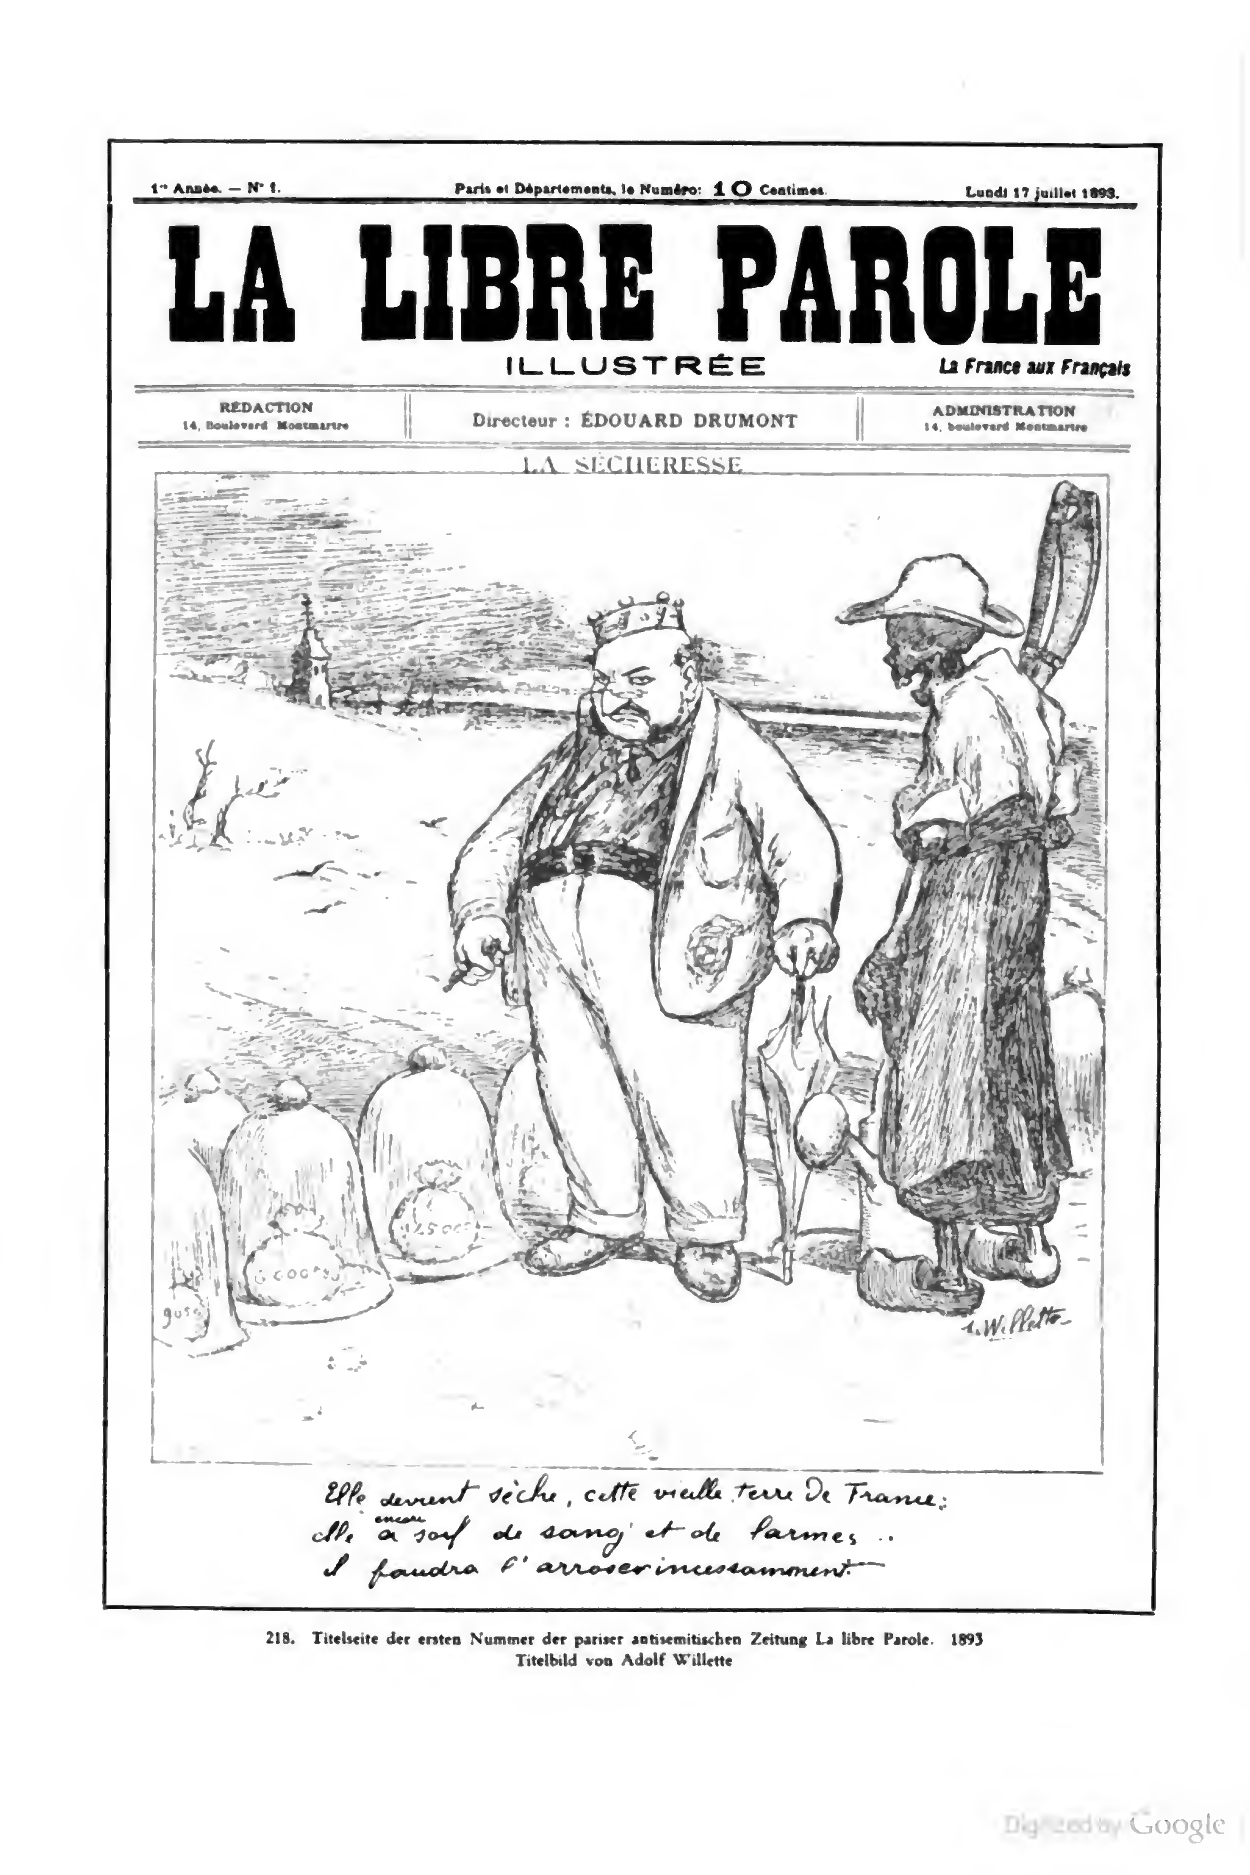 1re Année. — No 1.
Paris et Départements, le Numéro: 10 Centimes.
Lundi 17 juillet 1893.
LA LIBRE PAROLE
ILLUSTRÉE
La France aux Français
RÉDACTION
14, Boulevard Montmartre
Directeur : ÉDOUARD DRUMONT
ADMINISTRATION
14, boulevard Montmartre
LA SÉCHERESSE
A. Willette
Elle devient sèche, cette vieille terre De France;
elle a encore soif de sang et de larmes ..
il faudra l'arroser incessamment.
218. Titelseite der ersten Nummer der pariser antisemitischen Zeitung La libre Parole. 1893
Titelbild von Adolf Willette
Digitized by Google